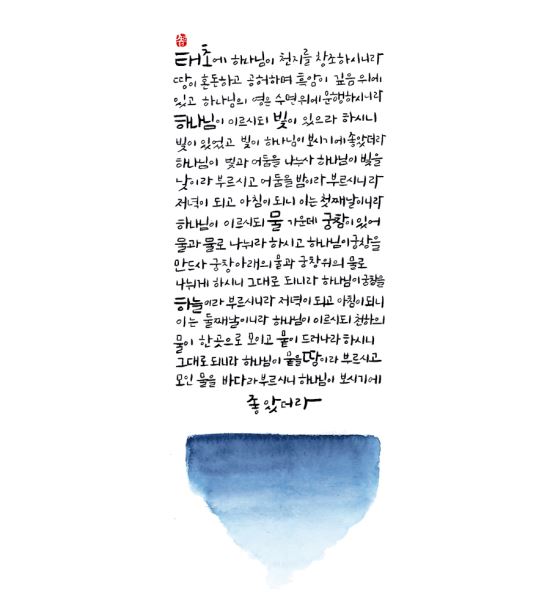 태초에 하나님이 천지를 창조하시니라
땅이 혼돈하고 공허하며 흑암이 깊음 위에
있고 하나님의 영은 수면 위에 운행하시니라
하나님이 이르시되 빛이 있으라 하시니
빛이 있었고 빛이 하나님이 보시기에 좋았더라
하나님이 빛과 어둠을 나누사 하나님이 빛을
낮이라 부르시고 어둠을 밤이라 부르시니라
저녁이 되고 아침이 되니 이는 첫째날이니라
하나님이 이르시되 물 가운데 궁창이 있어
물과 물로 나뉘라 하시고 하나님이 궁창을
만드사 궁창 아래의 물과 궁창 위의 물로
나뉘게 하시니 그대로 되니라 하나님이 궁창을
하늘이라 부르시니라 저녁이 되고 아침이 되니
이는 둘째날이니라 하나님이 이르시되 천하의
물이 한 곳으로 모이고 뭍이 드러나라 하시니
그대로 되니라 하나님이 뭍을 땅이라 부르시고
모인 물을 바다라 부르시니 하나님이 보시기에
좋았더라